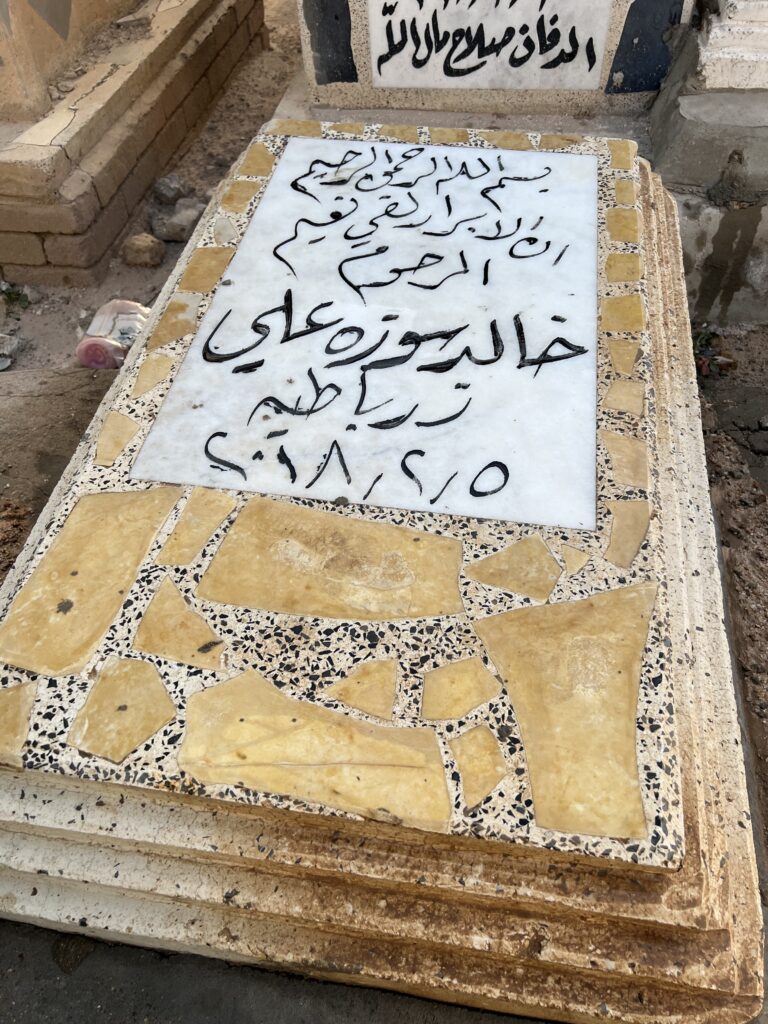 الدفان صلاح مال الله
بسم الله الرحمن الرحيم
ان الابرار لفي نعيم
المرحوم
خالد سوزه علي
زرباطيه
٢٠١٨/٢/٥